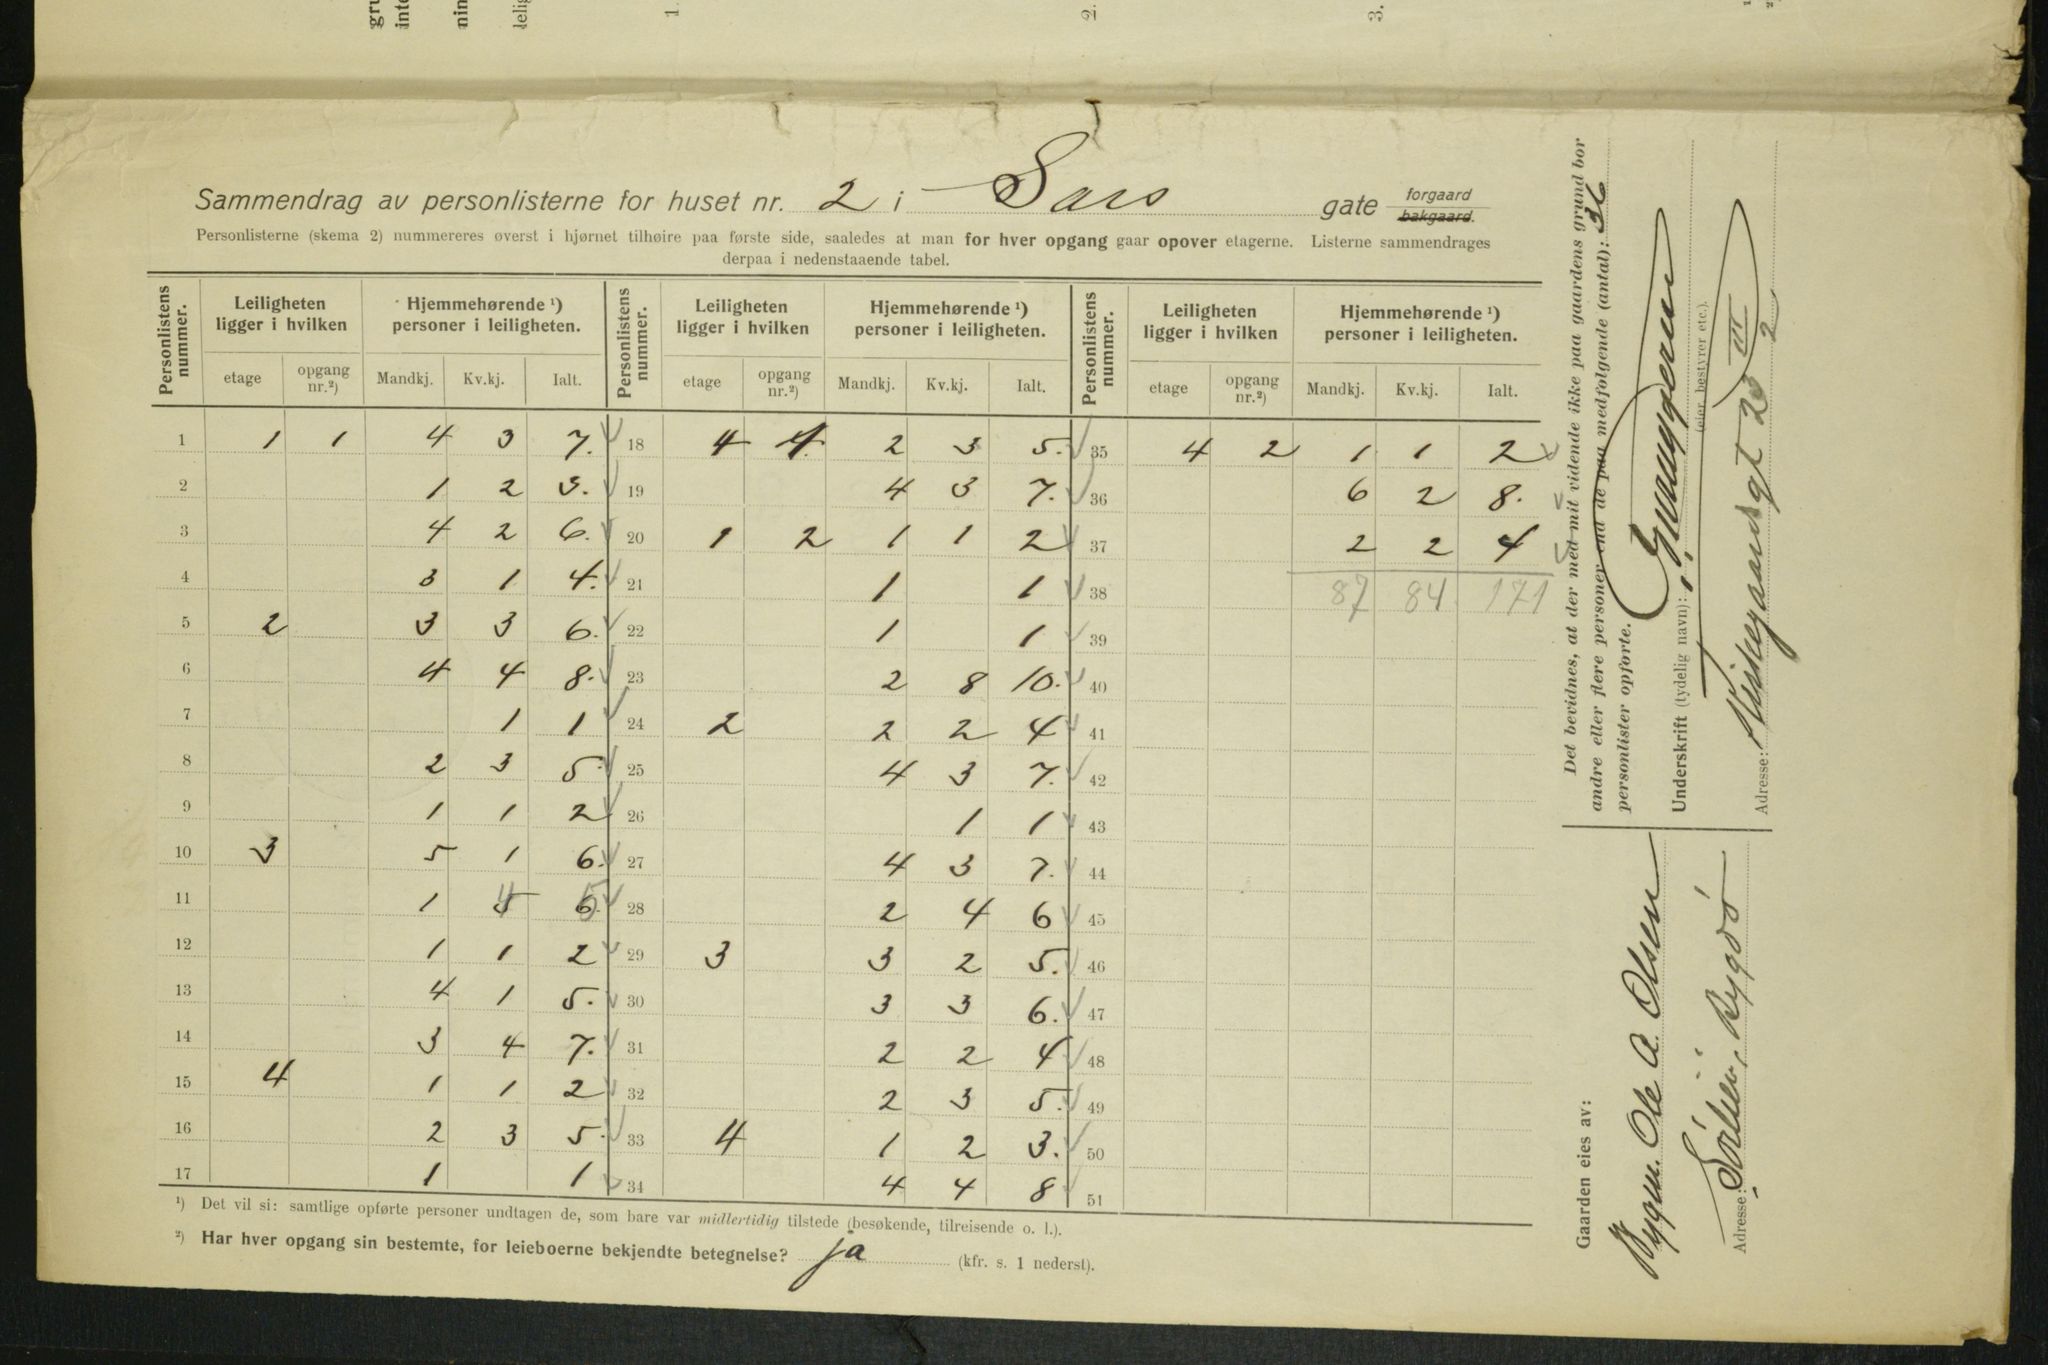 1.
2.
3.
Sammendrag av personlisterne for huset nr. 2 i Sars gate forgaard bakgaard.
Personlisterne (skema 2) nummereres øverst i hjørnet tilhøire paa første side, saaledes at man for hver opgang gaar opover etagerne. Listerne sammendrages
derpaa i nedenstaaende tabel.
Personlistens nummer. Leiligheten ligger i hvilken Hjemmehørende ¹) personer i leiligheten. Personlistens nummer. Leiligheten ligger i hvilken Hjemmehørende ¹) personer i leiligheten. Personlistens nummer. Leiligheten ligger i hvilken Hjemmehørende ¹) personer i leiligheten.
etage opgang nr.²) Mandkj. Kv.kj. Ialt. etage opgang nr.²) Mandkj. Kv.kj. Ialt. etage opgang nr.²) Mandkj. Kv.kj. Ialt.
1 1 1 4 3 7. 18 4 1. 2 3 5. 35 4 2 1 1 2
2 1 2 3. 19 4 3 7. 36 6 2 8.
3 4 2 6. 20 1 2 1 1 2 37 2 2 4
4 3 1 4. 21 1 1 38 87 84 171
5 2 3 3 6. 22 1 1 39
6 4 4 8. 23 2 8 10. 40
7 1 1 24 2 2 2 4 41
8 2 3 5. 25 4 3 7. 42
9 1 1 2 26 1 1 43
10 3 5 1 6. 27 4 3 7. 44
11 1 4 5 28 2 4 6 45
12 1 1 2 29 3 3 2 5. 46
13 4 1 5. 30 3 3 6. 47
14 3 4 7. 31 2 2 4 48
15 4 1 1 2 32 2 3 5. 49
16 2 3 5. 33 4 1 2 3. 50
17 1 1 34 4 4 8 51
¹) Det vil si: samtlige opførte personer undtagen de, som bare var midlertidig tilstede (besøkende, tilreisende o. l.).
²) Har hver opgang sin bestemte, for leieboerne bekjendte betegnelse? ja (kfr. s. 1 nederst).
Det bevidnes, at der med mit vidende ikke paa gaardens grund bor
andre eller flere personer end de paa medfølgende (antal): 36
personlister opførte.
Underskrift (tydelig navn):
(eier, bestyrer etc.).
Adresse: 23 III
2
Gaarden eies av:
Bygm. Ole A. Olsen
Adresse: Bygdö